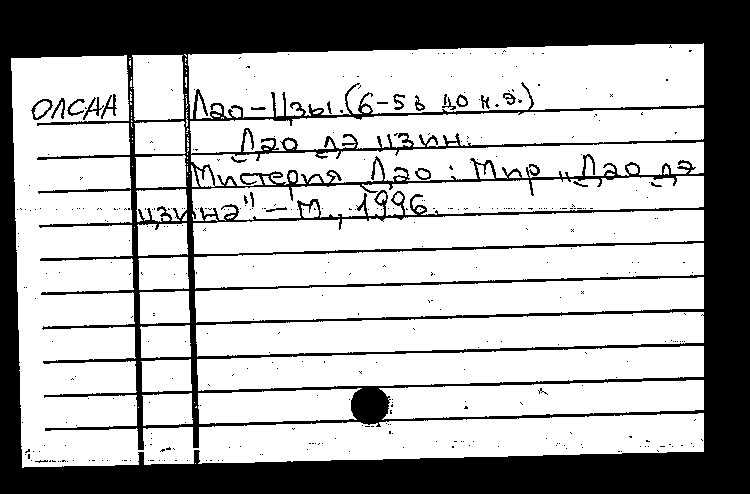 ОЛСАА Лао-Цзы. (6-5 в до н.э.)
Дао дэ цзин.
Мистерия Дао : Мир „Дао дэ
цзина". - М., 1996.